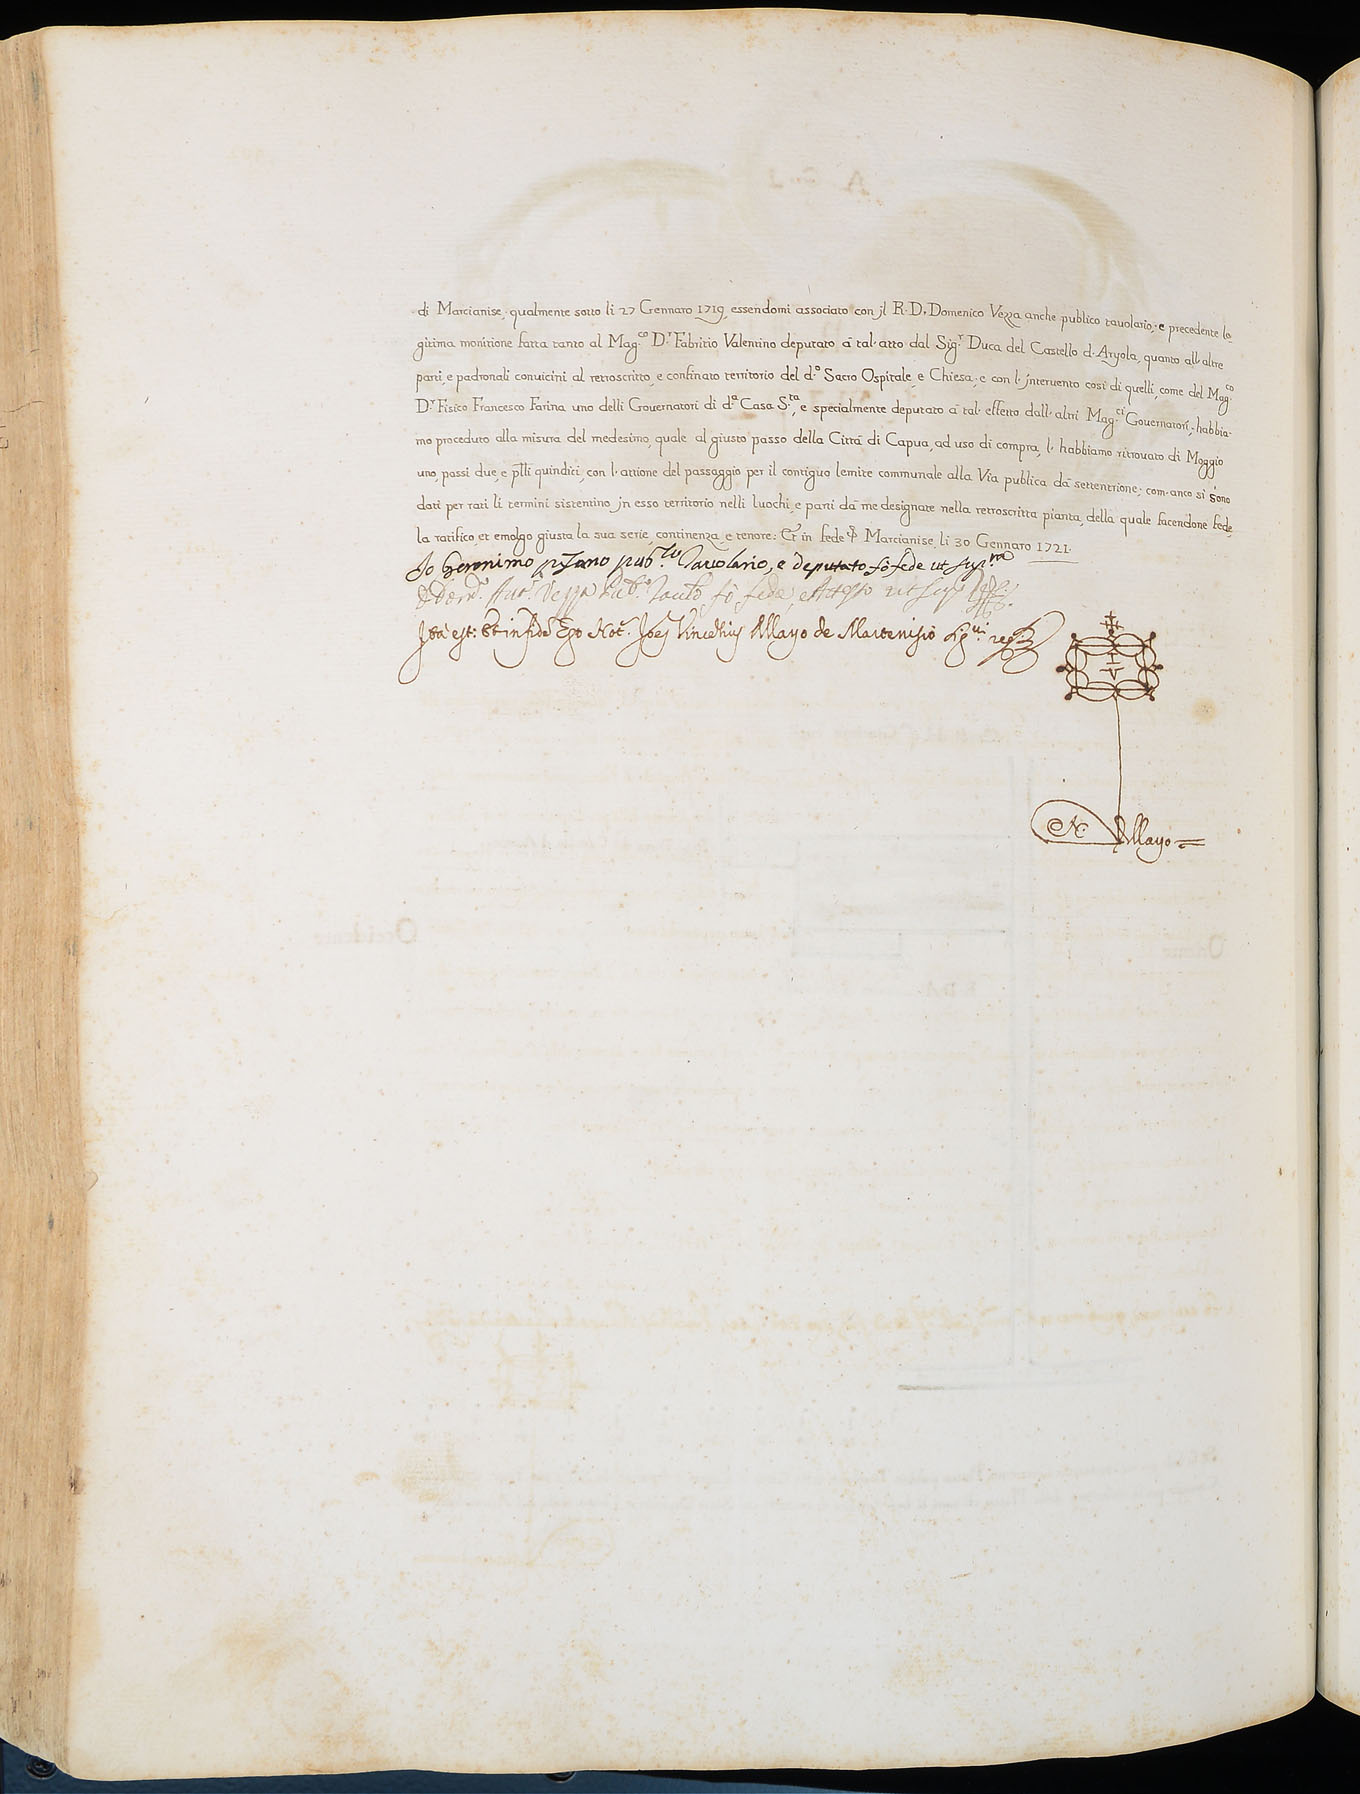 di Marcianise, qualmente sotto li 27 Gennaro 1719, essendomi associato con jl R. D. Domenico Vezza anche publico tavolario, e precedente le-
gitima monitione fatta tanto al Mag.co D.r Fabritio Valentino deputato à tal'atto dal Sig.r Duca del Castello d'Ayrola, quanto all'altre
parti, e padronali convicini al retroscritto, e confinato territorio del d.o Sacro Ospitale, e Chiesa; e con l'jntervento così di quelli, come del Mag.co
D.r Fisico Francesco Farina uno delli Governatori di d.a Casa S.ta, e specialmente deputato à tal'effetto dall'altri Mag.ci Governatori, habbia-
mo proceduto alla misura del medesimo, quale al giusto passo della Città di Capua, ad uso di compra, l'habbiamo ritrovato di Moggio
uno, passi due, e p̄tlli quindici, con l'attione del passaggio per il contiguo lemite communale alla Via publica dà settentrione; com'anco si sono
dati per rati li termini sistentino jn esso territorio nelli luochi, e parti dà me designate nella retroscritta pianta, della quale facendone fede,
la ratifico, et emolgo giusta la sua serie, continenza, e tenore: Et in fede &c. Marcianise, li 30 Gennaro 1721.
Io Geronimo pub.co Tavolario, e deputato fò fede ut supra
Vezza Pub.o fò fede, ut sup.
Ita est: Et in fidem Ego Not.s Joes Vincentius Mayo de Martenisio
N. Mayo
Occidente
Oriente